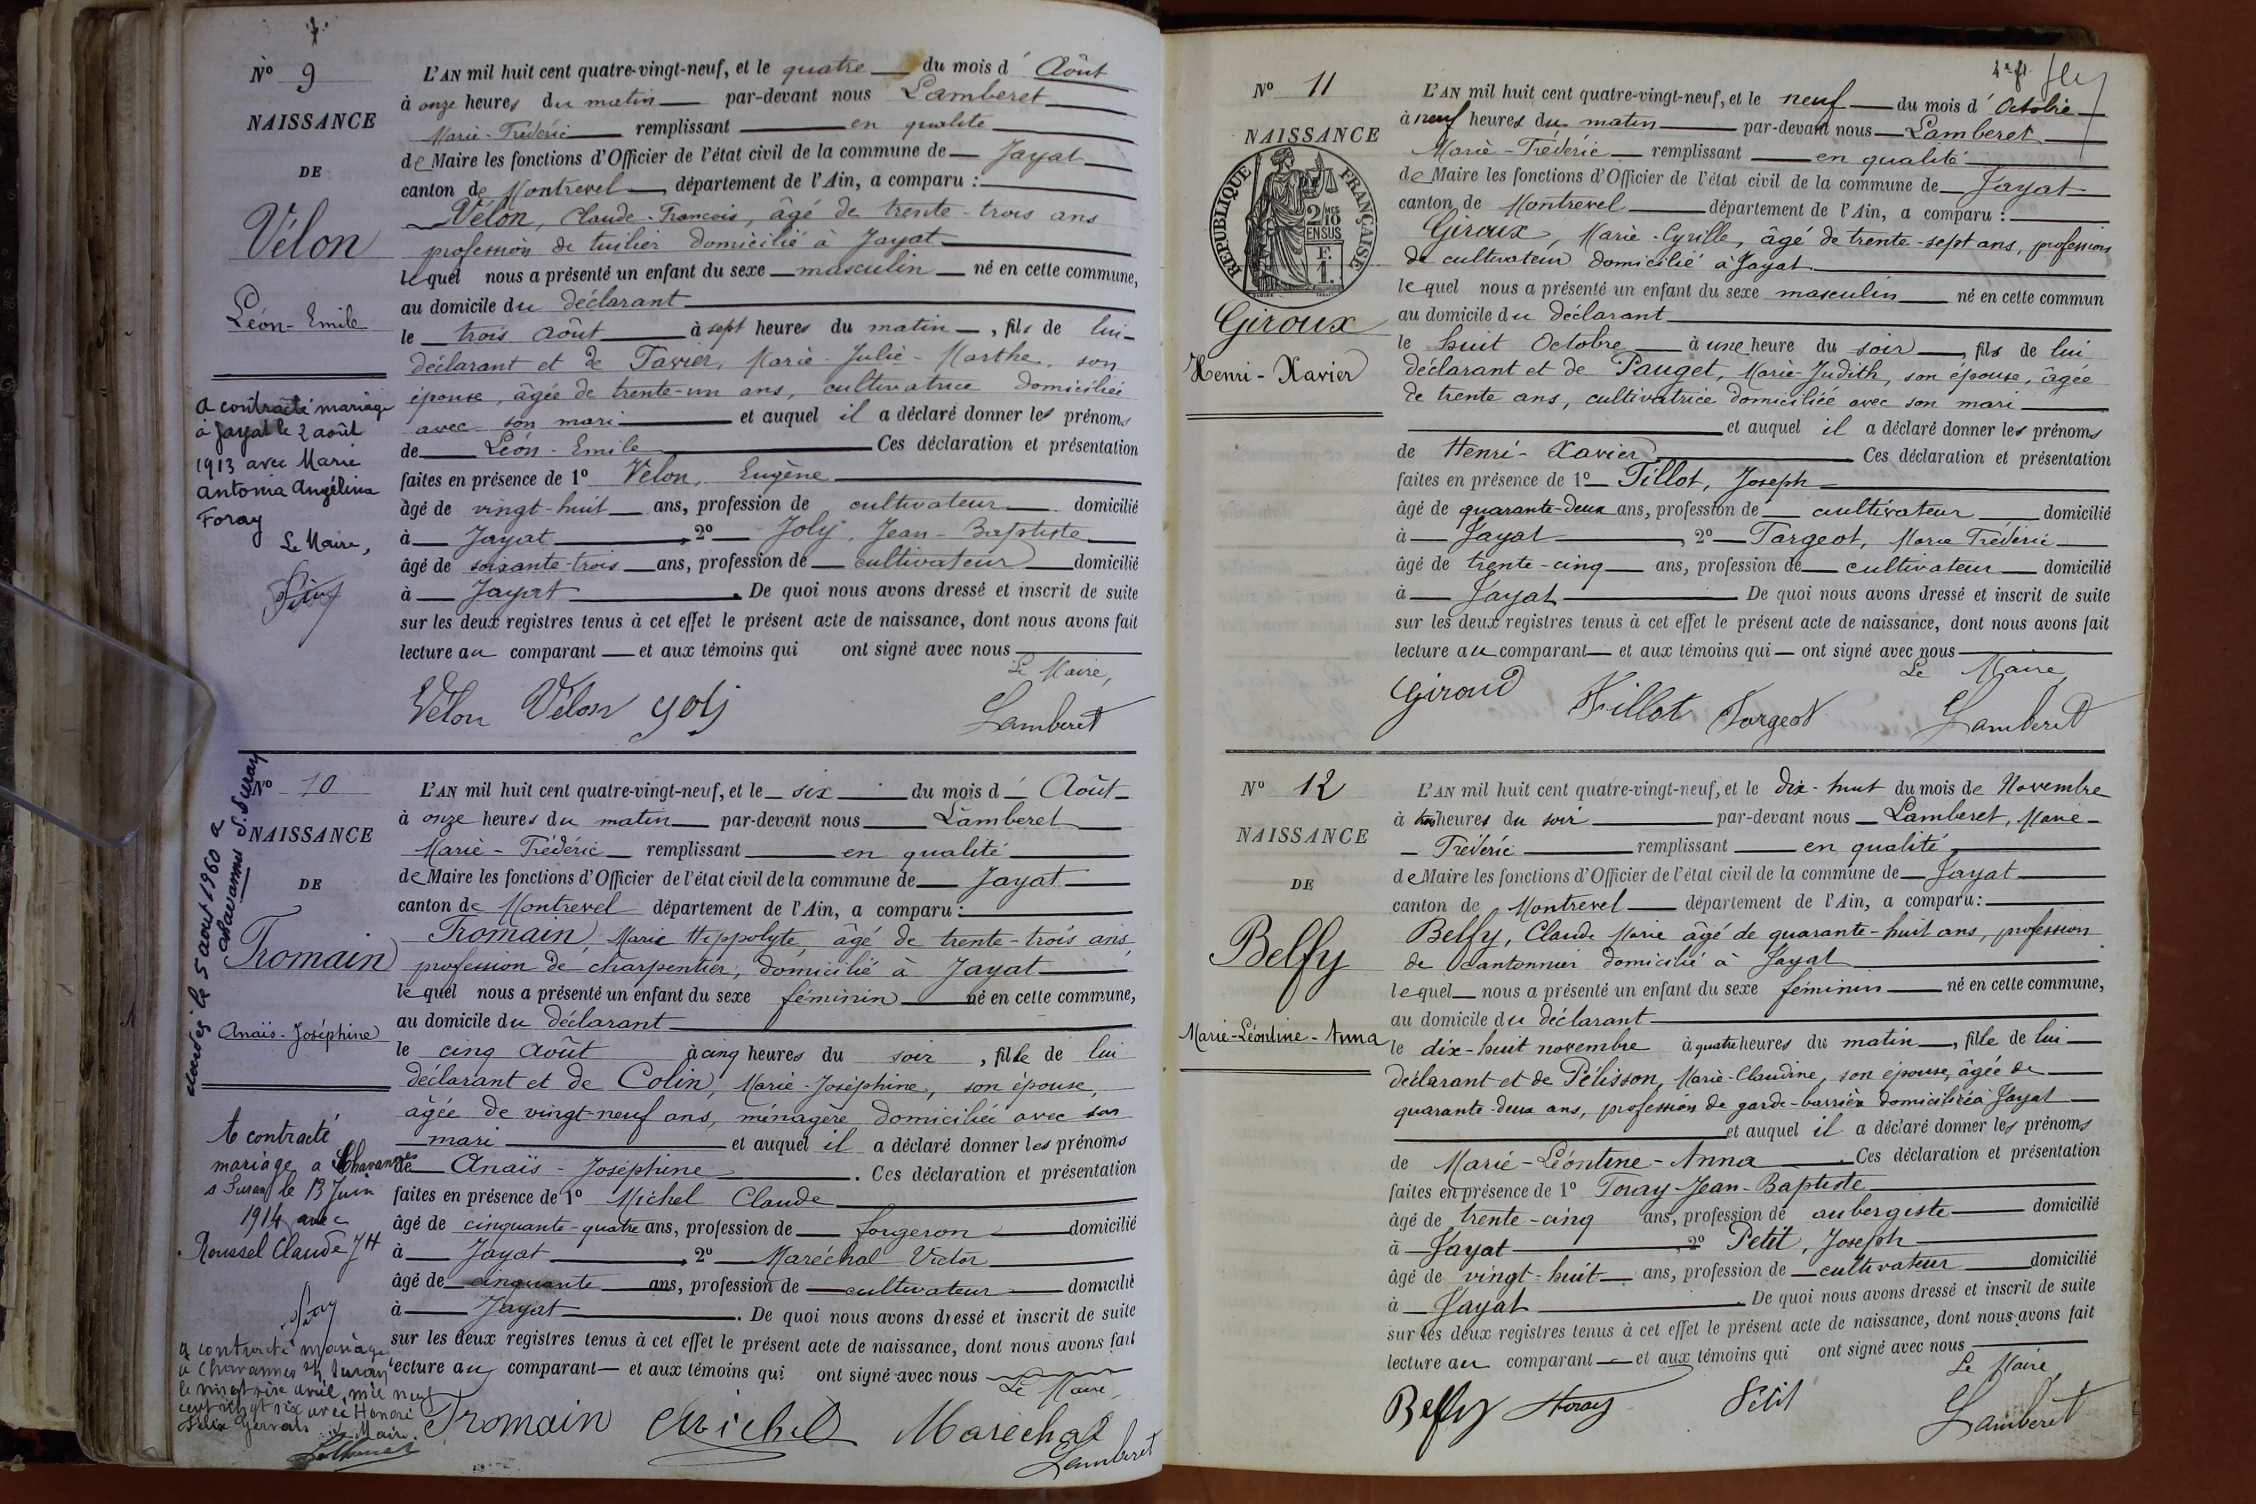 Nº 9
NAISSANCE
DE
Vélon
Léon-Emile
a contracté mariage
à Jayat le 2 août
1913 avec Marie
Antonia Angélina
Foray
Le Maire,
L'AN mil huit cent quatre-vingt-neuf, et le quatre du mois d' Août
à onze heures du matin par-devant nous Lamberet
Marie-Frédéric remplissant en qualité
de Maire les fonctions d'Officier de l'état civil de la commune de Jayat
canton de Montrevel, département de l'Ain, a comparu :
Vélon, Claude-Francois, âgé de trente-trois ans
profession de tuilier domicilié à Jayat
lequel nous a présenté un enfant du sexe masculin né en cette commune,
au domicile du déclarant
le trois Août à sept heures du matin, fils de lui
déclarant et de Tavier, Marie-Julie-Marthe, son
épouse, âgée de trente-un ans, cultivatrice domiciliée
avec son mari et auquel il a déclaré donner les prénoms
de Léon-Emile Ces déclaration et présentation
faites en présence de 1º Vélon, Eugène
âgé de vingt-huit ans, profession de cultivateur domicilié
à Jayat, 2º Joly, Jean-Baptiste
âgé de soixante-trois ans, profession de cultivateur domicilié
à Jayat. De quoi nous avons dressé et inscrit de suite
sur les deux registres tenus à cet effet le présent acte de naissance, dont nous avons fait
lecture au comparant et aux témoins qui ont signé avec nous
Le Maire,
Vélon Vélon Joly Lamberet
Nº 10
NAISSANCE
DE
Tromain
Anaïs-Joséphine
décédée le 5 août 1960 à
Chavannes s. Suran
A contracté
mariage à Chavannes
s Suran le 13 Juin
1914 avec
Roussel Claude JH
a contracté mariage
à Chavannes s/ Suran
le vingt six avril mil neuf
cent vingt six avec Honoré
Félix Gervais le Maire.
L'AN mil huit cent quatre-vingt-neuf, et le six du mois d' Août
à onze heures du matin par-devant nous Lamberet
Marie-Frédéric remplissant en qualité
de Maire les fonctions d'Officier de l'état civil de la commune de Jayat
canton de Montrevel département de l'Ain, a comparu :
Tromain, Marie Hippolyte, âgé de trente-trois ans
profession de charpentier, domicilié à Jayat
lequel nous a présenté un enfant du sexe féminin né en cette commune,
au domicile du déclarant
le cinq Août à cinq heures du soir, fille de lui
déclarant et de Colin, Marie-Joséphine, son épouse,
âgée de vingt-neuf ans, ménagère domiciliée avec son
mari et auquel il a déclaré donner les prénoms
de Anaïs-Joséphine. Ces déclaration et présentation
faites en présence de 1º Michel Claude
âgé de cinquante-quatre ans, profession de forgeron domicilié
à Jayat, 2º Maréchal Victor
âgé de cinquante ans, profession de cultivateur domicilié
à Jayat. De quoi nous avons dressé et inscrit de suite
sur les deux registres tenus à cet effet le présent acte de naissance, dont nous avons fait
lecture au comparant et aux témoins qui ont signé avec nous
Le Maire,
Tromain Michel Maréchal
Lamberet
Nº 11
NAISSANCE
RÉPUBLIQUE FRANÇAISE
2/10
EN SUS
F.
1.
Giroux
Henri-Xavier
L'AN mil huit cent quatre-vingt-neuf, et le neuf du mois d' Octobre
à neuf heures du matin par-devant nous Lamberet
Marie-Frédéric remplissant en qualité
de Maire les fonctions d'Officier de l'état civil de la commune de Jayat
canton de Montrevel département de l'Ain, a comparu :
Giroux, Marie-Cyrille, âgé de trente-sept ans, profession
de cultivateur domicilié à Jayat.
lequel nous a présenté un enfant du sexe masculin né en cette commun
au domicile du déclarant
le huit Octobre à une heure du soir, fils de lui
déclarant et de Pauget, Marie-Judith, son épouse, âgée
de trente ans, cultivatrice domiciliée avec son mari
et auquel il a déclaré donner les prénoms
de Henri-Xavier Ces déclaration et présentation
faites en présence de 1º Tillot, Joseph
âgé de quarante-deux ans, profession de cultivateur domicilié
à Jayat, 2º Targeot, Marie Frédéric
âgé de trente-cinq ans, profession de cultivateur domicilié
à Jayat De quoi nous avons dressé et inscrit de suite
sur les deux registres tenus à cet effet le présent acte de naissance, dont nous avons fait
lecture au comparant et aux témoins qui ont signé avec nous
Le Maire
Giroud Tillot Targeot Lamberet
Nº 12
NAISSANCE
DE
Belfy
Marie-Léontine-Anna
L'AN mil huit cent quatre-vingt-neuf, et le dix-huit du mois de Novembre
à trois heures du soir par-devant nous Lamberet, Marie-
Frédéric remplissant en qualité
de Maire les fonctions d'Officier de l'état civil de la commune de Jayat
canton de Montrevel département de l'Ain, a comparu :
Belfy, Claude Marie âgé de quarante-huit ans, profession
de cantonnier domicilié à Jayat
lequel nous a présenté un enfant du sexe féminin né en cette commune,
au domicile du déclarant
le dix-huit novembre à quatre heures du matin, fille de lui
déclarant et de Pélisson, Marie-Claudine, son épouse, âgée de
quarante-deux ans, profession de garde-barrière domiciliée à Jayat
et auquel il a déclaré donner les prénoms
de Marie-Léontine-Anna. Ces déclaration et présentation
faites en présence de 1º Foray-Jean-Baptiste
âgé de trente-cinq ans, profession de aubergiste domicilié
à Jayat, 2º Petit, Joseph
âgé de vingt-huit ans, profession de cultivateur domicilié
à Jayat. De quoi nous avons dressé et inscrit de suite
sur les deux registres tenus à cet effet le présent acte de naissance, dont nous avons fait
lecture au comparant et aux témoins qui ont signé avec nous
Le Maire
Belfy Foray Petit Lamberet